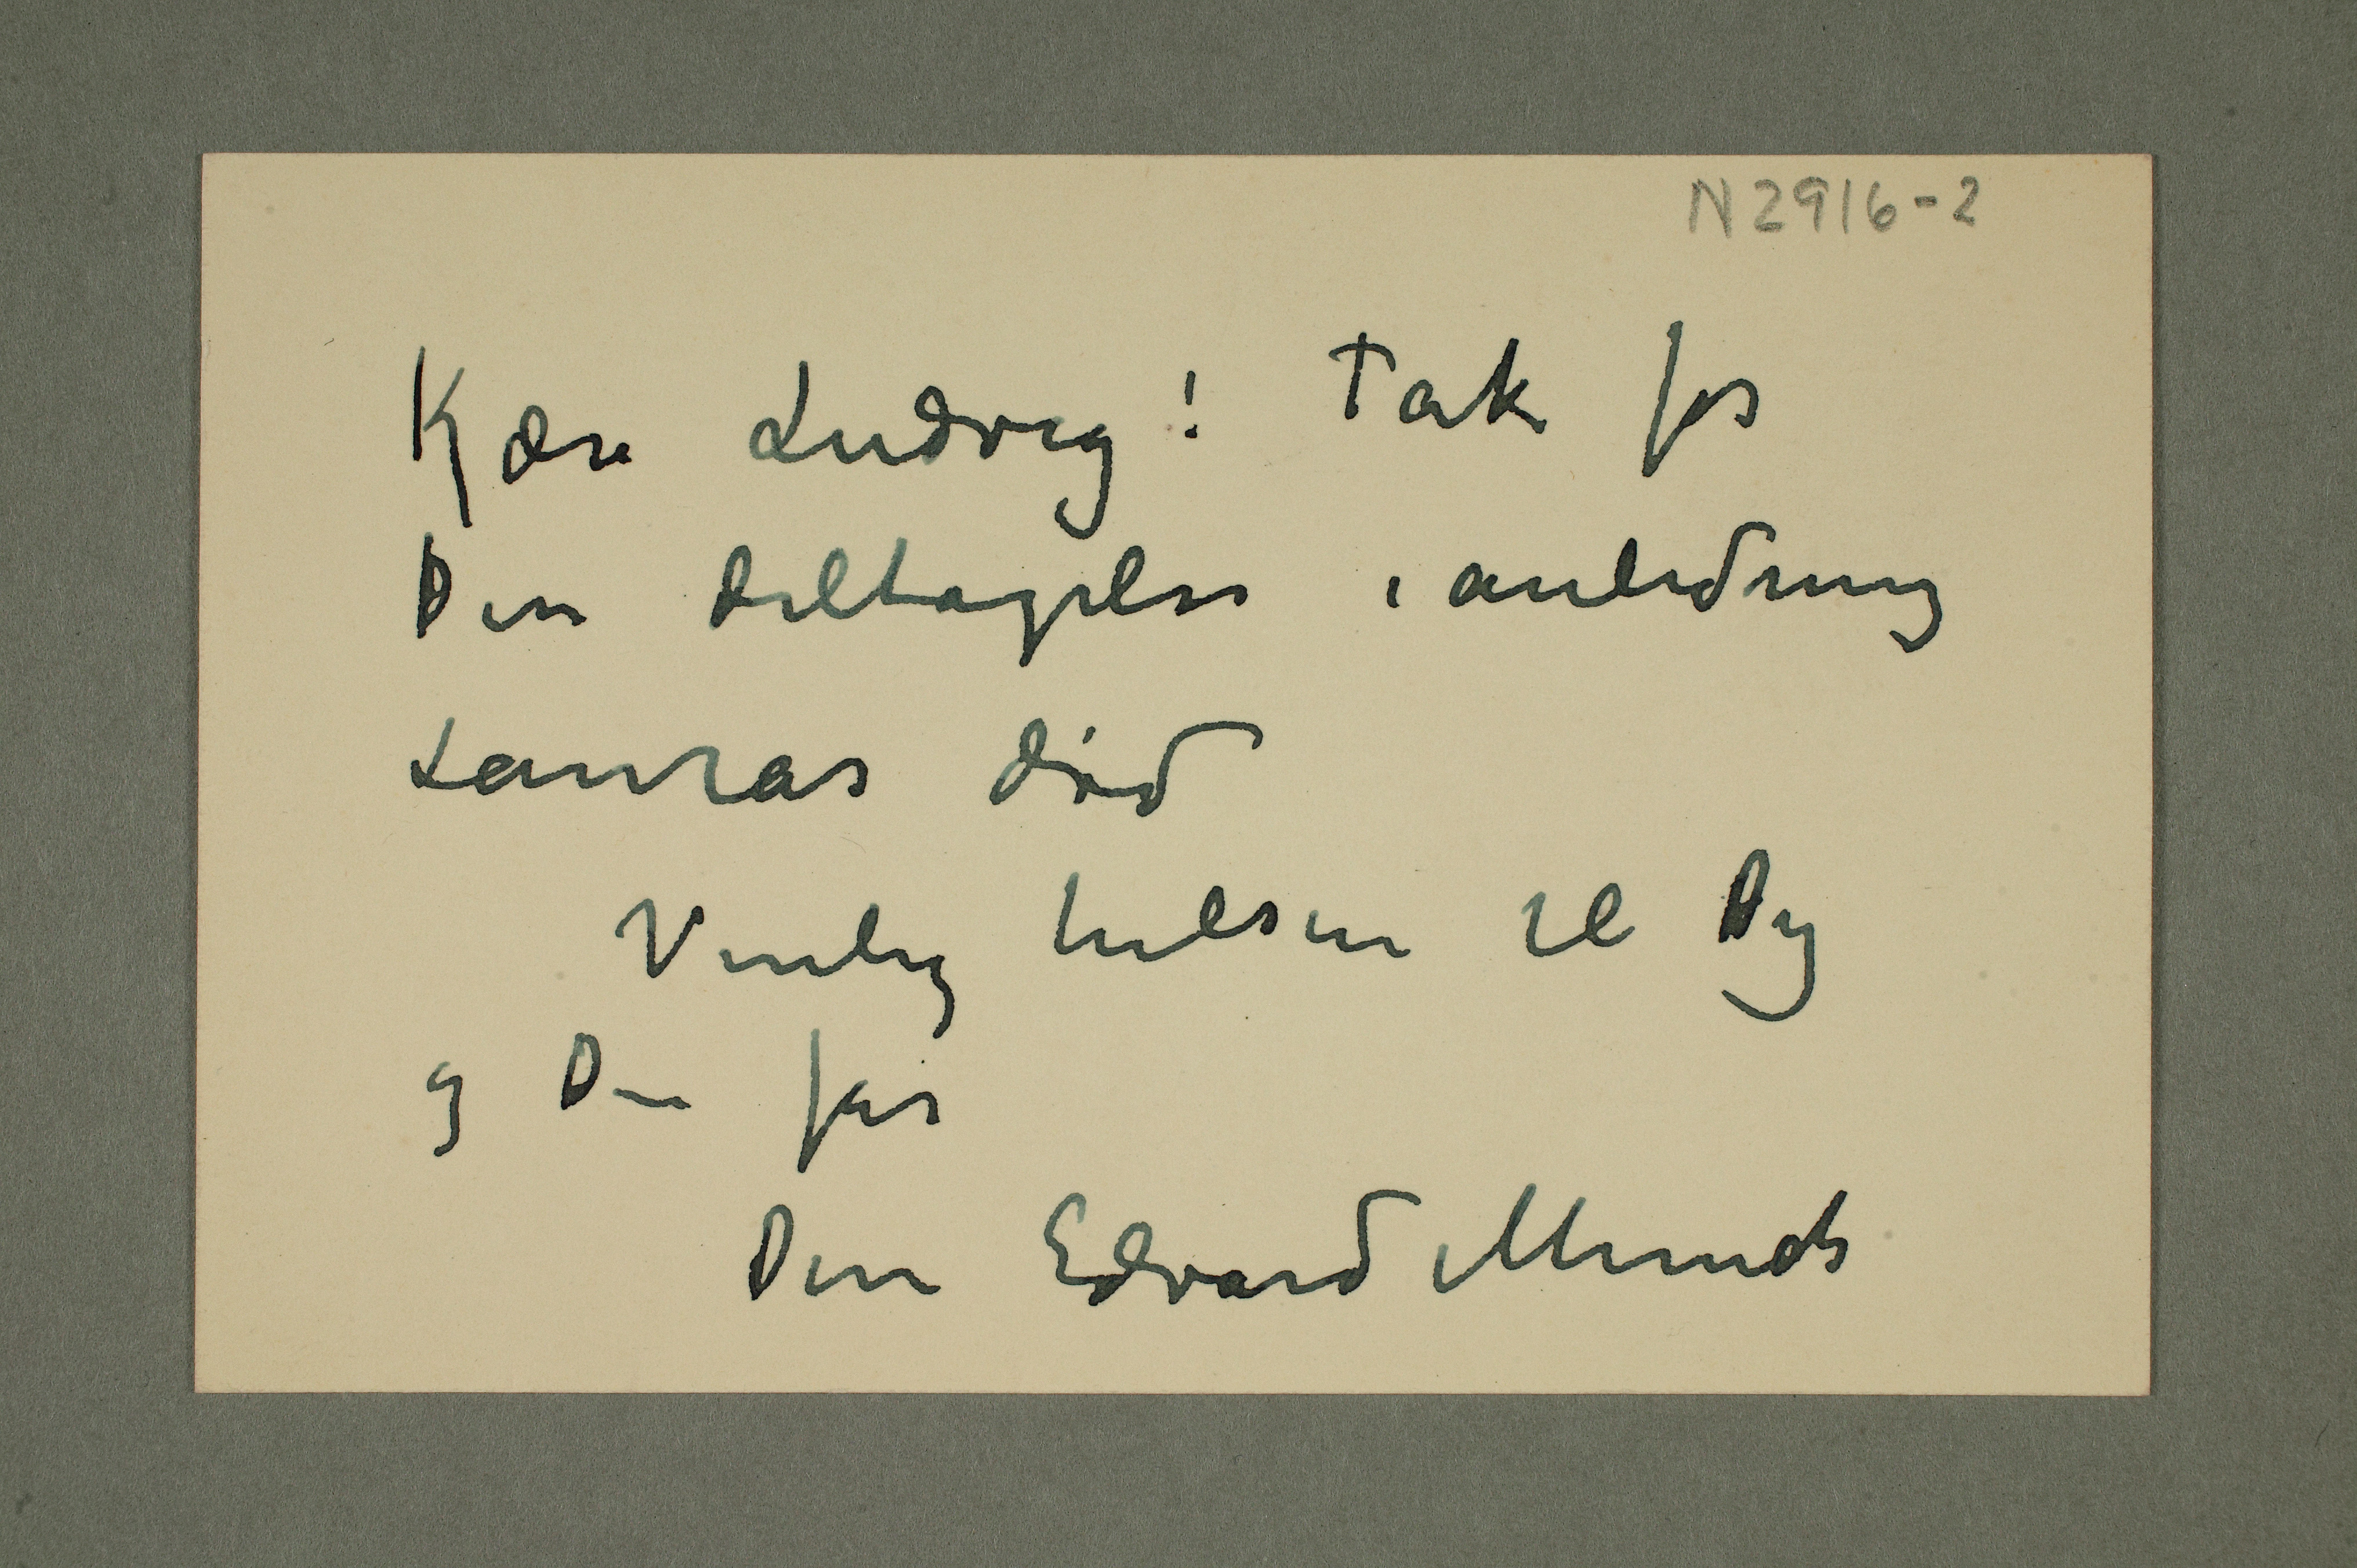 N2916-2
Kære Ludvig! Tak for
Din deltagelse i anledning
Lauras død
Venlig hilsen til Dig
og Din far
Din Edvard Munch